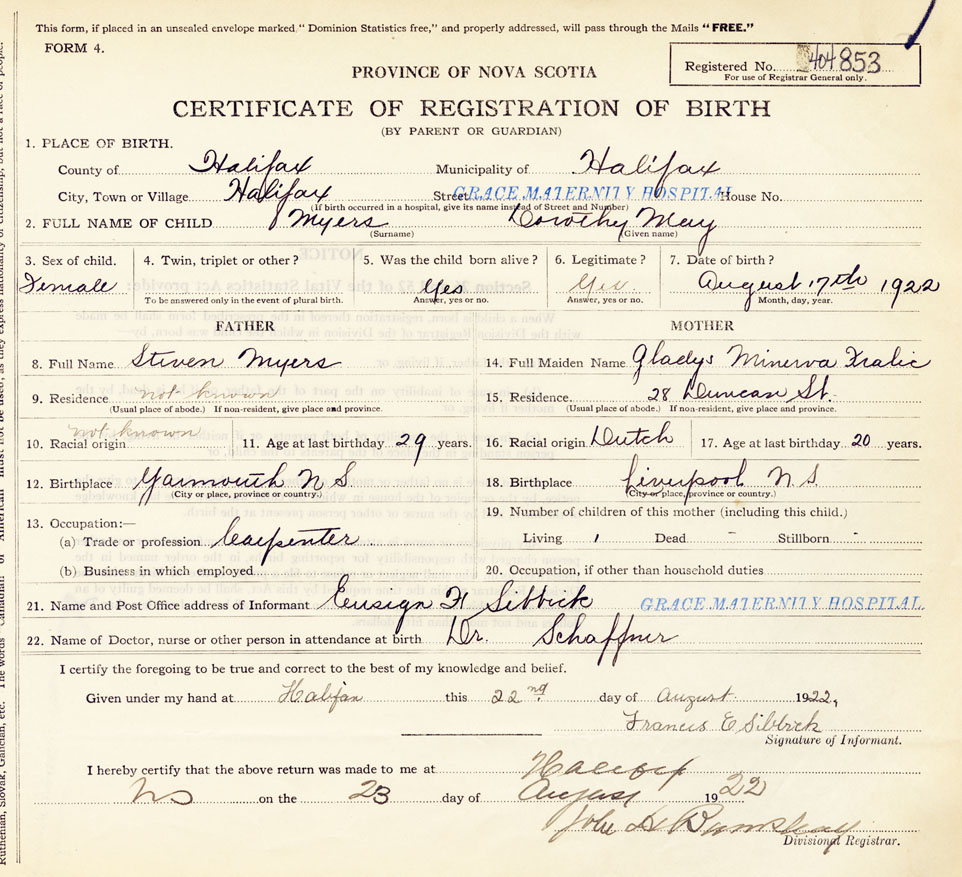 This form, if placed in an unsealed envelope marked "Dominion Statistics free," and properly addressed, will pass through the Mails "FREE."
FORM 4.
Registered No. 404853
For use of Registrar General only.
PROVINCE OF NOVA SCOTIA
CERTIFICATE OF REGISTRATION OF BIRTH
(BY PARENT OR GUARDIAN)
1. PLACE OF BIRTH.
County of Halifax Municipality of Halifax
City, Town or Village Halifax Street GRACE MATERNITY HOSPITAL House No.
(If birth occurred in a hospital, give its name instead of Street and Number)
2. FULL NAME OF CHILD Myers Dorothy May
(Surname) (Given name)
3. Sex of child. 4. Twin, triplet or other? 5. Was the child born alive? 6. Legitimate? 7. Date of birth?
Female Yes Yes. August 17th 1922
To be answered only in the event of plural birth. Answer, yes or no. Answer, yes or no. Month, day, year.
FATHER MOTHER
8. Full Name Steven Myers 14. Full Maiden Name Gladys Minerva Fralic
9. Residence not known 15. Residence. 28 Duncan St.
(Usual place of abode.) If non-resident, give place and province. (Usual place of abode.) If non-resident, give place and province.
10. Racial origin not known 11. Age at last birthday 29 years. 16. Racial origin Dutch 17. Age at last birthday 20 years.
12. Birthplace Yarmouth N S. 18. Birthplace Liverpool N. S.
(City or place, province or country.) (City or place, province or country.)
13. Occupation:— 19. Number of children of this mother (including this child.)
(a) Trade or profession Carpenter Living 1 Dead – Stillborn -
(b) Business in which employed 20. Occupation, if other than household duties
21. Name and Post Office address of Informant Ensign F Sibbick GRACE MATERNITY HOSPITAL
22. Name of Doctor, nurse or other person in attendance at birth Dr. Schaffner
I certify the foregoing to be true and correct to the best of my knowledge and belief.
Given under my hand at Halifax this 22nd day of August 1922,
Francis E Sibbick
Signature of Informant.
I hereby certify that the above return was made to me at Halifax
NS on the 23 day of August 1922
John H
Divisional Registrar.